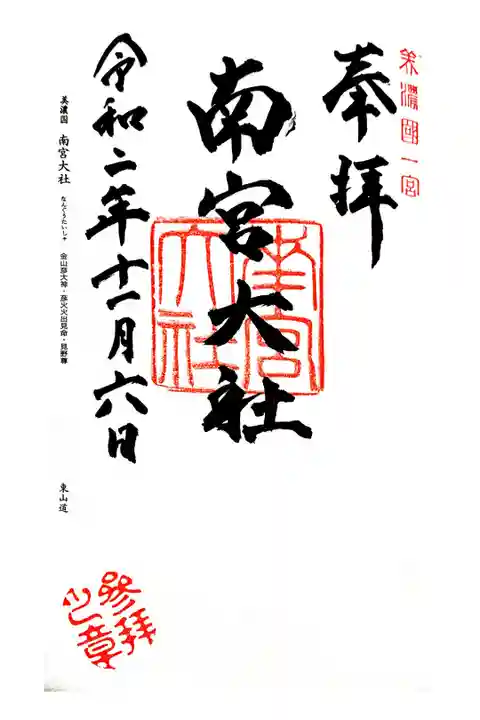 美濃國一宮
奉拝
南宮大社
南宮大社
令和二年十一月六日
美濃国 南宮大社 なんぐうたいしゃ 金山彦大神・彦火火出見命・見野尊
東山道
参拝之章